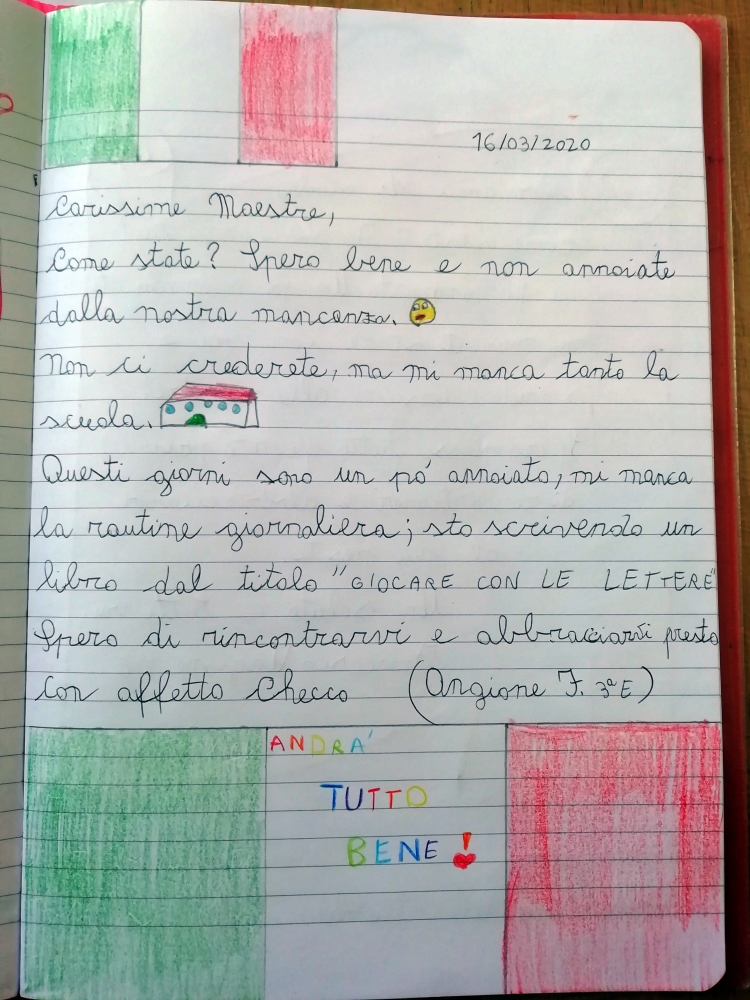 16/03/2020
Carissime Maestre,
Come state? Spero bene e non annoiate
dalla nostra mancanza.
Non ci crederete, ma mi manca tanto la
scuola.
Questi giorni sono un pó annoiato, mi manca
la routine giornaliera; sto scrivendo un
libro dal titolo "GIOCARE CON LE LETTERE"
Spero di rincontrarvi e abbracciarvi presto
Con affetto Checco (Angione F. 3ªE)
ANDRA'
TUTTO
BENE!